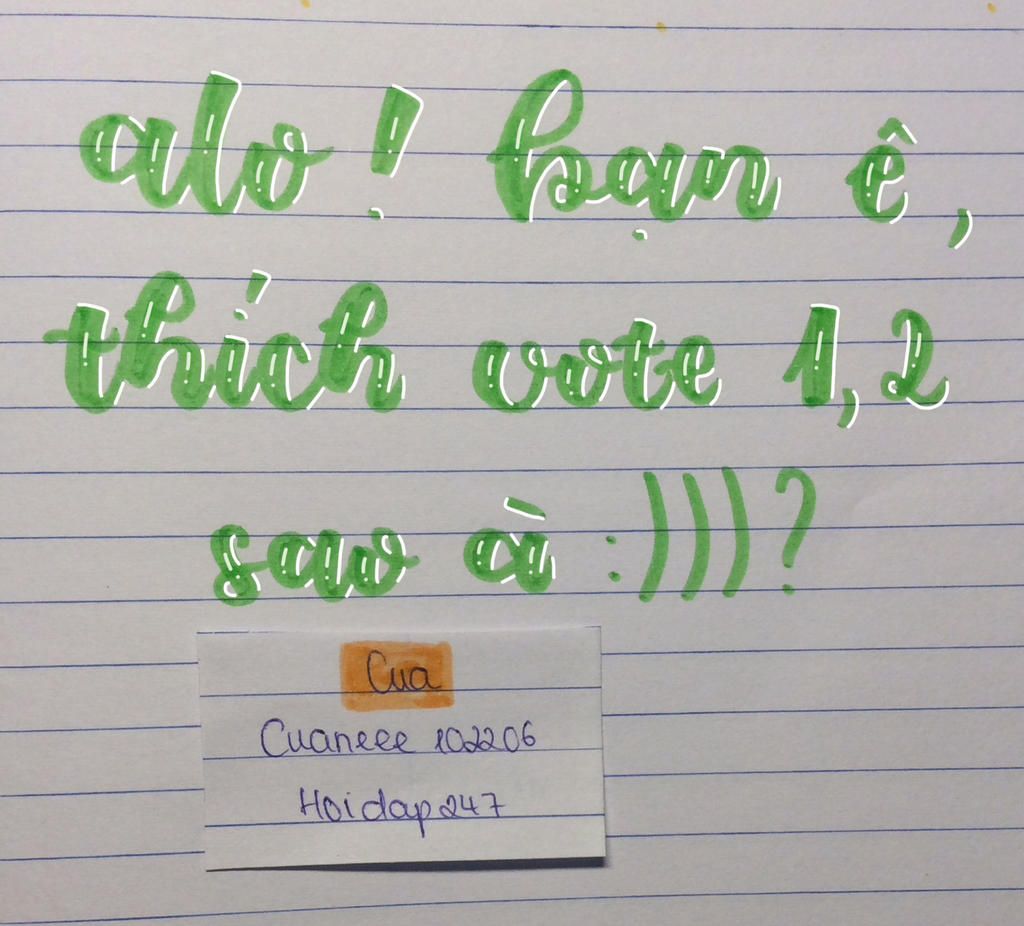 alo! bạn ê,
thích vote 1,2
sao à :)))?
Cua
Cuaneee 102206
Hoidap247